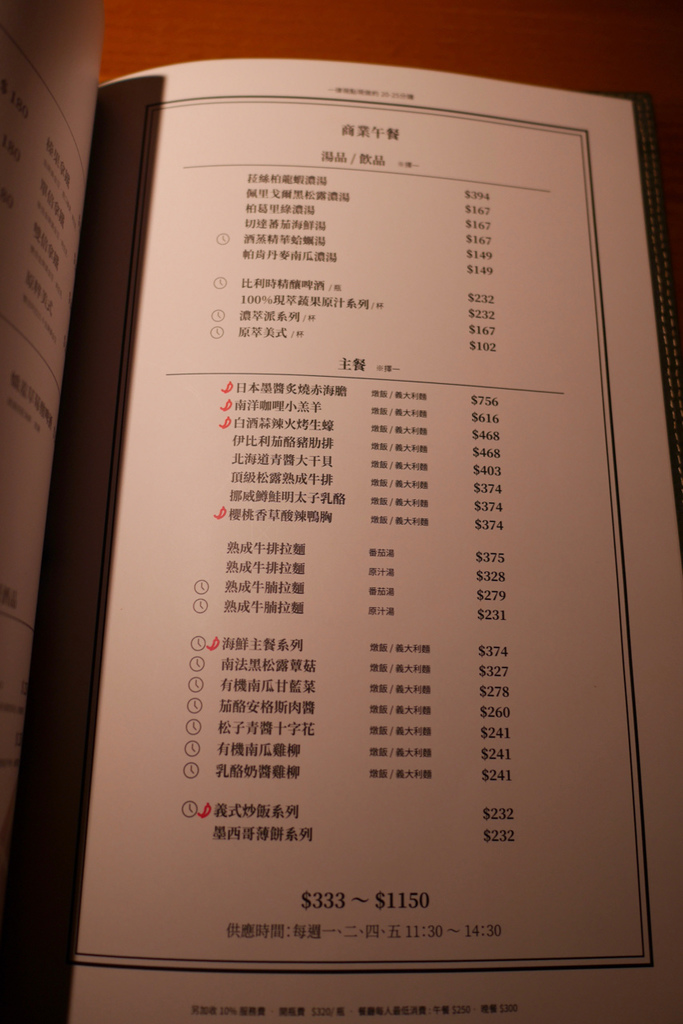 $180
180
80
原萃美式
一律現點現做約 20-25分鐘
商業午餐
湯品 / 飲品 ※擇一
菘絲柏龍蝦濃湯 $394
佩里戈爾黑松露濃湯 $167
柏葛里綠濃湯 $167
切達蕃茄海鮮湯 $167
酒蒸精華蛤蠣湯 $149
帕肯丹麥南瓜濃湯 $149
比利時精釀啤酒 / 瓶 $232
100%現萃蔬果原汁系列 / 杯 $232
濃萃派系列 / 杯 $167
原萃美式 / 杯 $102
主餐 ※擇一
日本墨醬炙燒赤海膽 燉飯 / 義大利麵 $756
南洋咖哩小羔羊 燉飯 / 義大利麵 $616
白酒蒜辣火烤生蠔 燉飯 / 義大利麵 $468
伊比利茄酪豬肋排 燉飯 / 義大利麵 $468
北海道青醬大干貝 燉飯 / 義大利麵 $403
頂級松露熟成牛排 燉飯 / 義大利麵 $374
挪威鱒鮭明太子乳酪 燉飯 / 義大利麵 $374
櫻桃香草酸辣鴨胸 燉飯 / 義大利麵 $374
熟成牛排拉麵 番茄湯 $375
熟成牛排拉麵 原汁湯 $328
熟成牛腩拉麵 番茄湯 $279
熟成牛腩拉麵 原汁湯 $231
海鮮主餐系列 燉飯 / 義大利麵 $374
南法黑松露蕈菇 燉飯 / 義大利麵 $327
有機南瓜甘藍菜 燉飯 / 義大利麵 $278
茄酪安格斯肉醬 燉飯 / 義大利麵 $260
松子青醬十字花 燉飯 / 義大利麵 $241
有機南瓜雞柳 燉飯 / 義大利麵 $241
乳酪奶醬雞柳 燉飯 / 義大利麵 $241
義式炒飯系列 $232
墨西哥薄餅系列 $232
$333 ～ $1150
供應時間：每週一、二、四、五 11:30 ～ 14:30
另加收 10% 服務費 · 開瓶費 $320/ 瓶 · 餐廳每人最低消費：午餐 $250 · 晚餐 $300